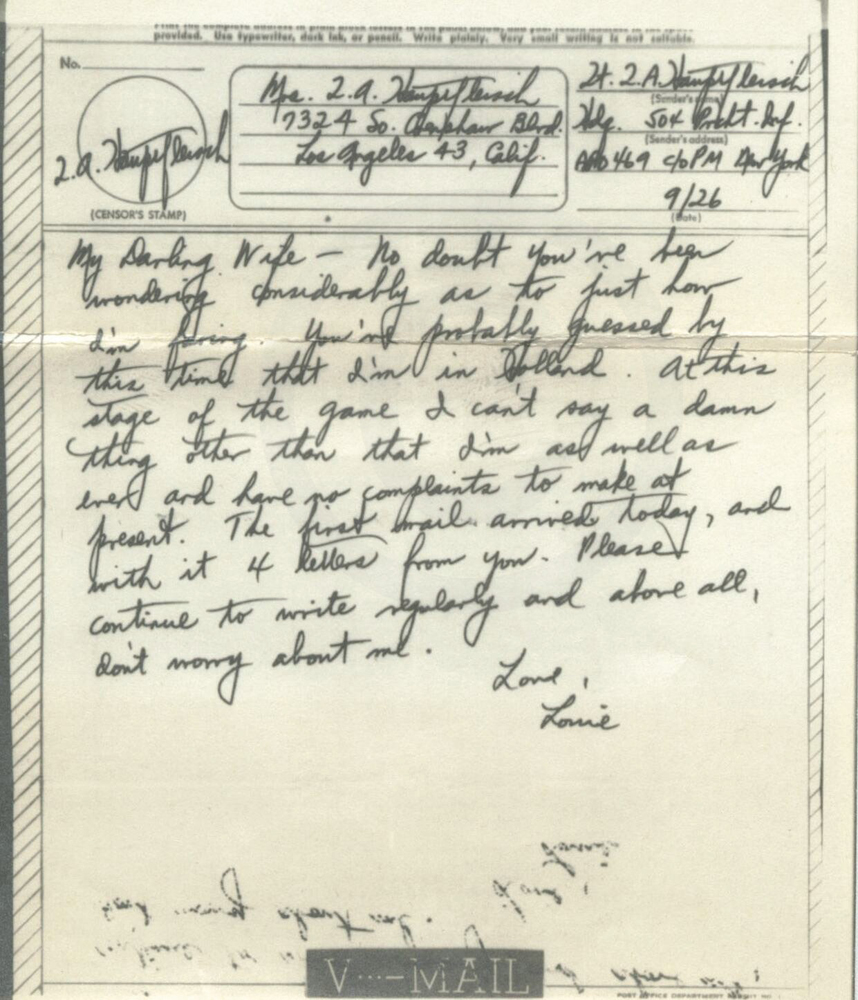 provided. Use typewriter, dark ink, or pencil. Write plainly. Very small writing is not suitable.
No.
(CENSOR'S STAMP)
L.A. Hauptfleisch
Mrs. L.A. Hauptfleisch
7324 So. Crenshaw Blvd.
Los Angeles 43, Calif.
Lt. L.A. Hauptfleisch
(Sender's name)
Hdq. 504 Prcht. Inf.
(Sender's address)
APO 469 c/o PM New York
9/26
(Date)
My Darling Wife — No doubt you've been
wondering considerably as to just how
I'm faring. You've probably guessed by
this time that I'm in Holland. At this
stage of the game I can't say a damn
thing other than that I'm as well as
ever and have no complaints to make at
present. The first mail arrived today, and
with it 4 letters from you. Please
continue to write regularly and above all,
don't worry about me.
Love,
Louie
V···—MAIL